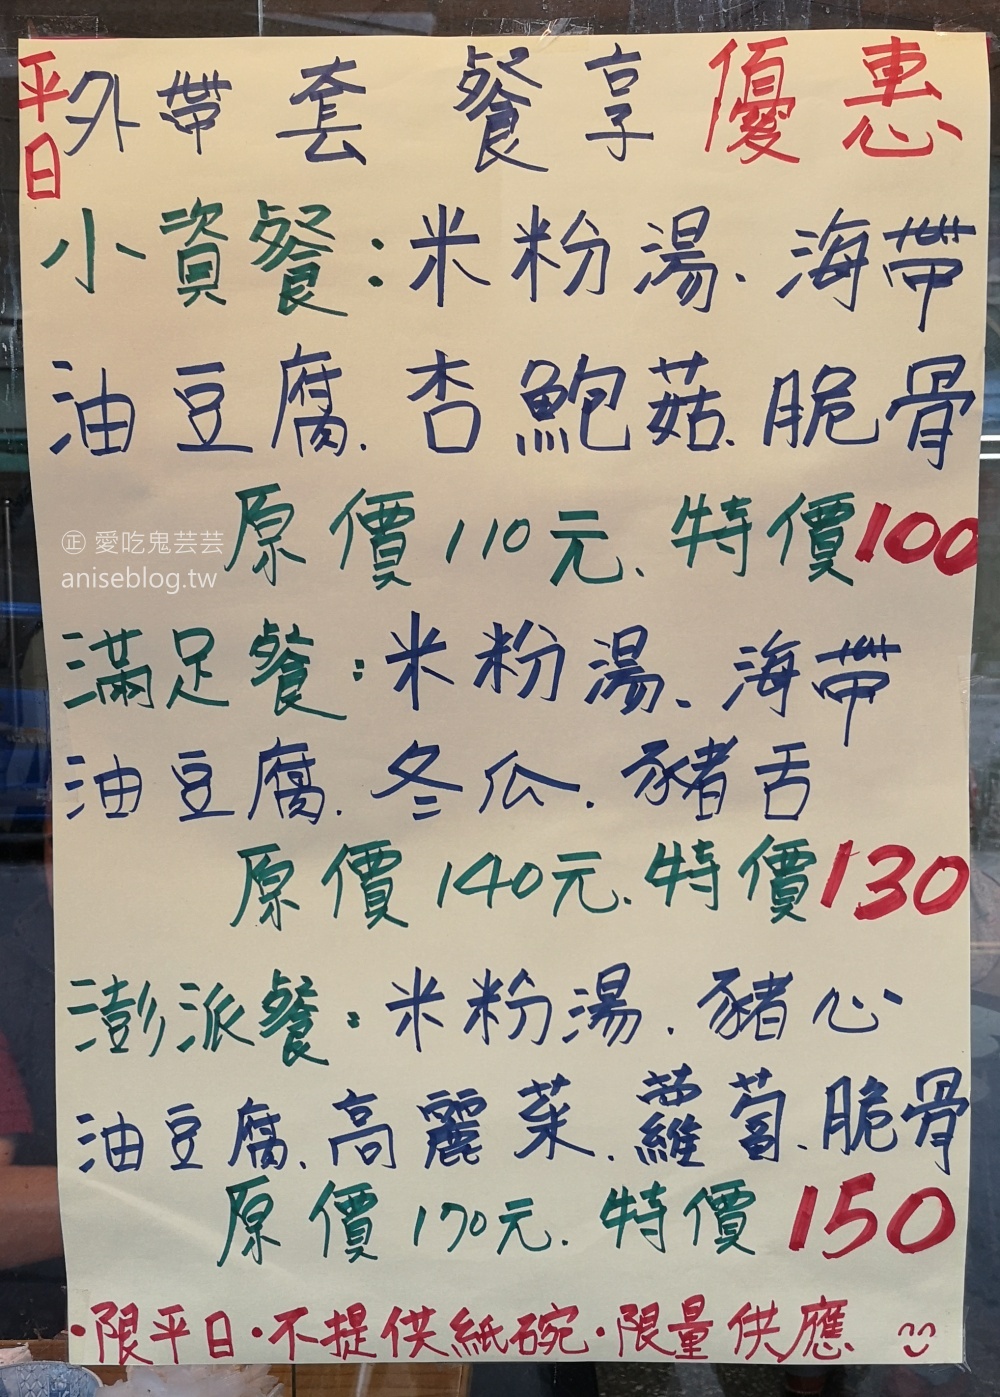 平日外帶套餐享優惠
小資餐:米粉湯、海帶
油豆腐.杏鮑菇、脆骨
原價110元、特價100
㊣ 愛吃鬼芸芸
aniseblog.tw
滿足餐:米粉湯、海帶
油豆腐.冬瓜.豬舌
原價140元.特價130
澎派餐:米粉湯.豬心
油豆腐、高麗菜、蘿蔔、脆骨
原價170元.特價150
·限平日·不提供紙碗·限量供應